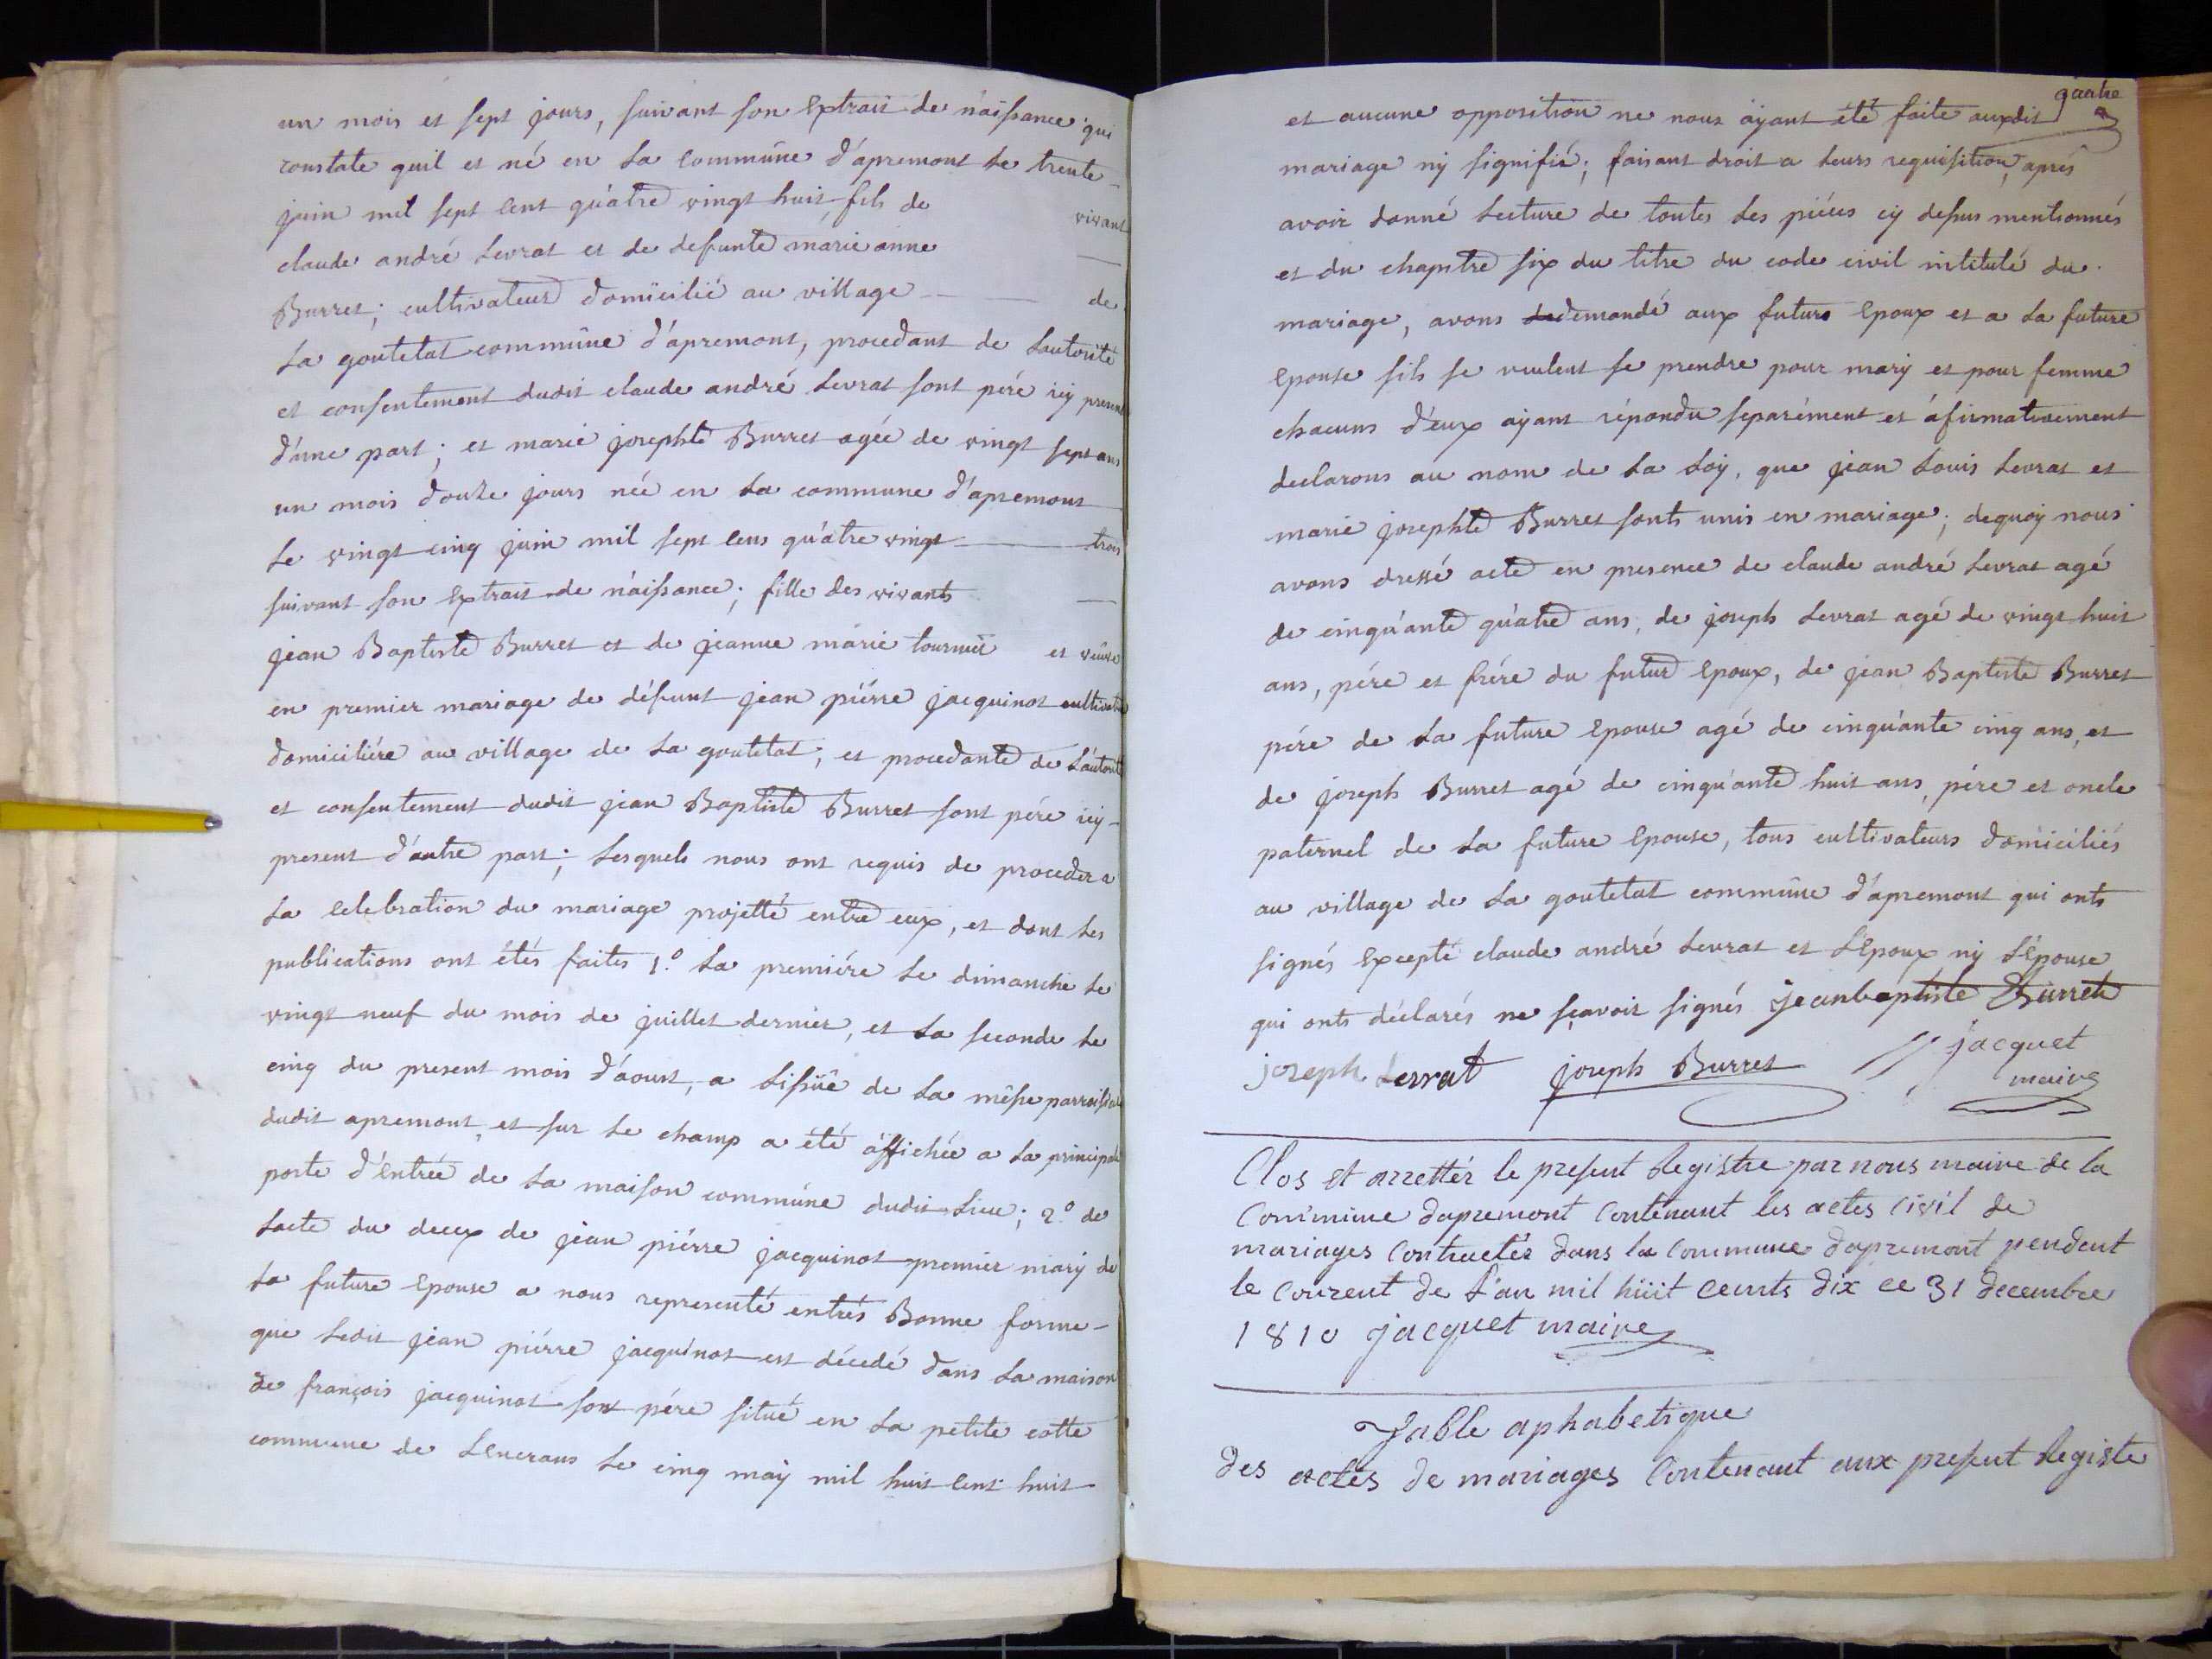 un mois et sept jours, suivant son Extrait de náissance qui
constate quil et né en La Commúne d'apremont Le trente
juin mil sept Cent quátre vingt huit, fils de vivant
claude andré Levrat et de defunte marie anne —
Burret; cultivateur domicilié au village — de
La goutetat commúne d'ápremont, procedant de Lautorité
et consentement dudit claude andré Levrat sont pére icy present
d'úne part; et marie josephte Burret agée de vingt sept ans
un mois douze jours née en La commune d'apremont
Le vingt cinq juin mil sept Cens quátre vingt — trois
suivant son Extrait de náissance; fille des vivants —
jean Baptiste Burret et de jeanne márie tournié et veûve
en premier mariage de défunt jean piérre jacquinot cultivatrice
domiciliére au village de La goutetat; et procedante de Láutorité
et consentement dudit jean Baptiste Burret sont pére icy
present d'autre part; Lesquels nous ont requis de proceder a
La Celebration du mariage projetté entre eux, et dont Les
publications ont étés faites 1.° La premiére Le dimanche Le
vingt neuf du mois de juillet dernier, et La seconde Le
cinq du present mois d'áoust, a Lissüe de La mêsse parroissiale
dudit apremont, et sur Le champ a été áffichée a La principale
porte d'Entrée de La maison commúne dudit Lieu; 2.° de
Lacte du decex de jean piérre jacquinot premier mary de
La future Epouse a nous representé entrés Bonne forme -
que Ledit jean piérre jacquinot est décedé dans La maison
de françois jacquinot sont pére situé en La petite cotte
commune de LEncrans Le cinq may mil huit Cent huit
quatre
et aucune opposition ne nous áyant été faite auxdit
mariage ny signifié; faisant droit a Leurs requisition, aprés
avoir donné Lecture de toutes Les piéces cy dessus mentionnés
et du chapitre six du titre du code civil intitulé du
mariage, avons de demandé aux future Epoux et a La future
Epouse sils se veulent se prendre pour mary et pour femme
chacuns d'eux ayant répondu separément et áfirmativement
declarons au nom de La Loy, que jean Louis Levrat et
marie josephte Burret sonts unis en mariage; dequoy nous
avons dressé acte en presence de claude andré Levrat agé
de cinquánte quátre ans, de joseph Levrat agé de vingt huit
ans, pére et frére du futur Epoux, de jean Baptiste Burret
pére de La future Epouse agé de cinquánte cinq ans, et
de joseph Burret agé de cinquánte huit ans, pére et oncle
paternel de La future Epouse, tous cultivateurs domiciliés
au village de La goutetat commúne d'apremont qui onts
signés Excepté claude andré Levrat et LEpoux ny LEpouse
qui onts déclarés ne sçavoir signés jeanbaptiste Burret
joseph Levrat joseph Burret jacquet
maire
Clos et arrettér le present Registre par nous maire de la
Commune dapremont Contenant les actes Civil de
mariages Contractér dans la Commune dapremont pendent
le Courent de L'an mil hüit Cents dix ce 31 decembre
1810 jacquet maire
Table aphabetique
des actes de mariages Contenant aux present Registe